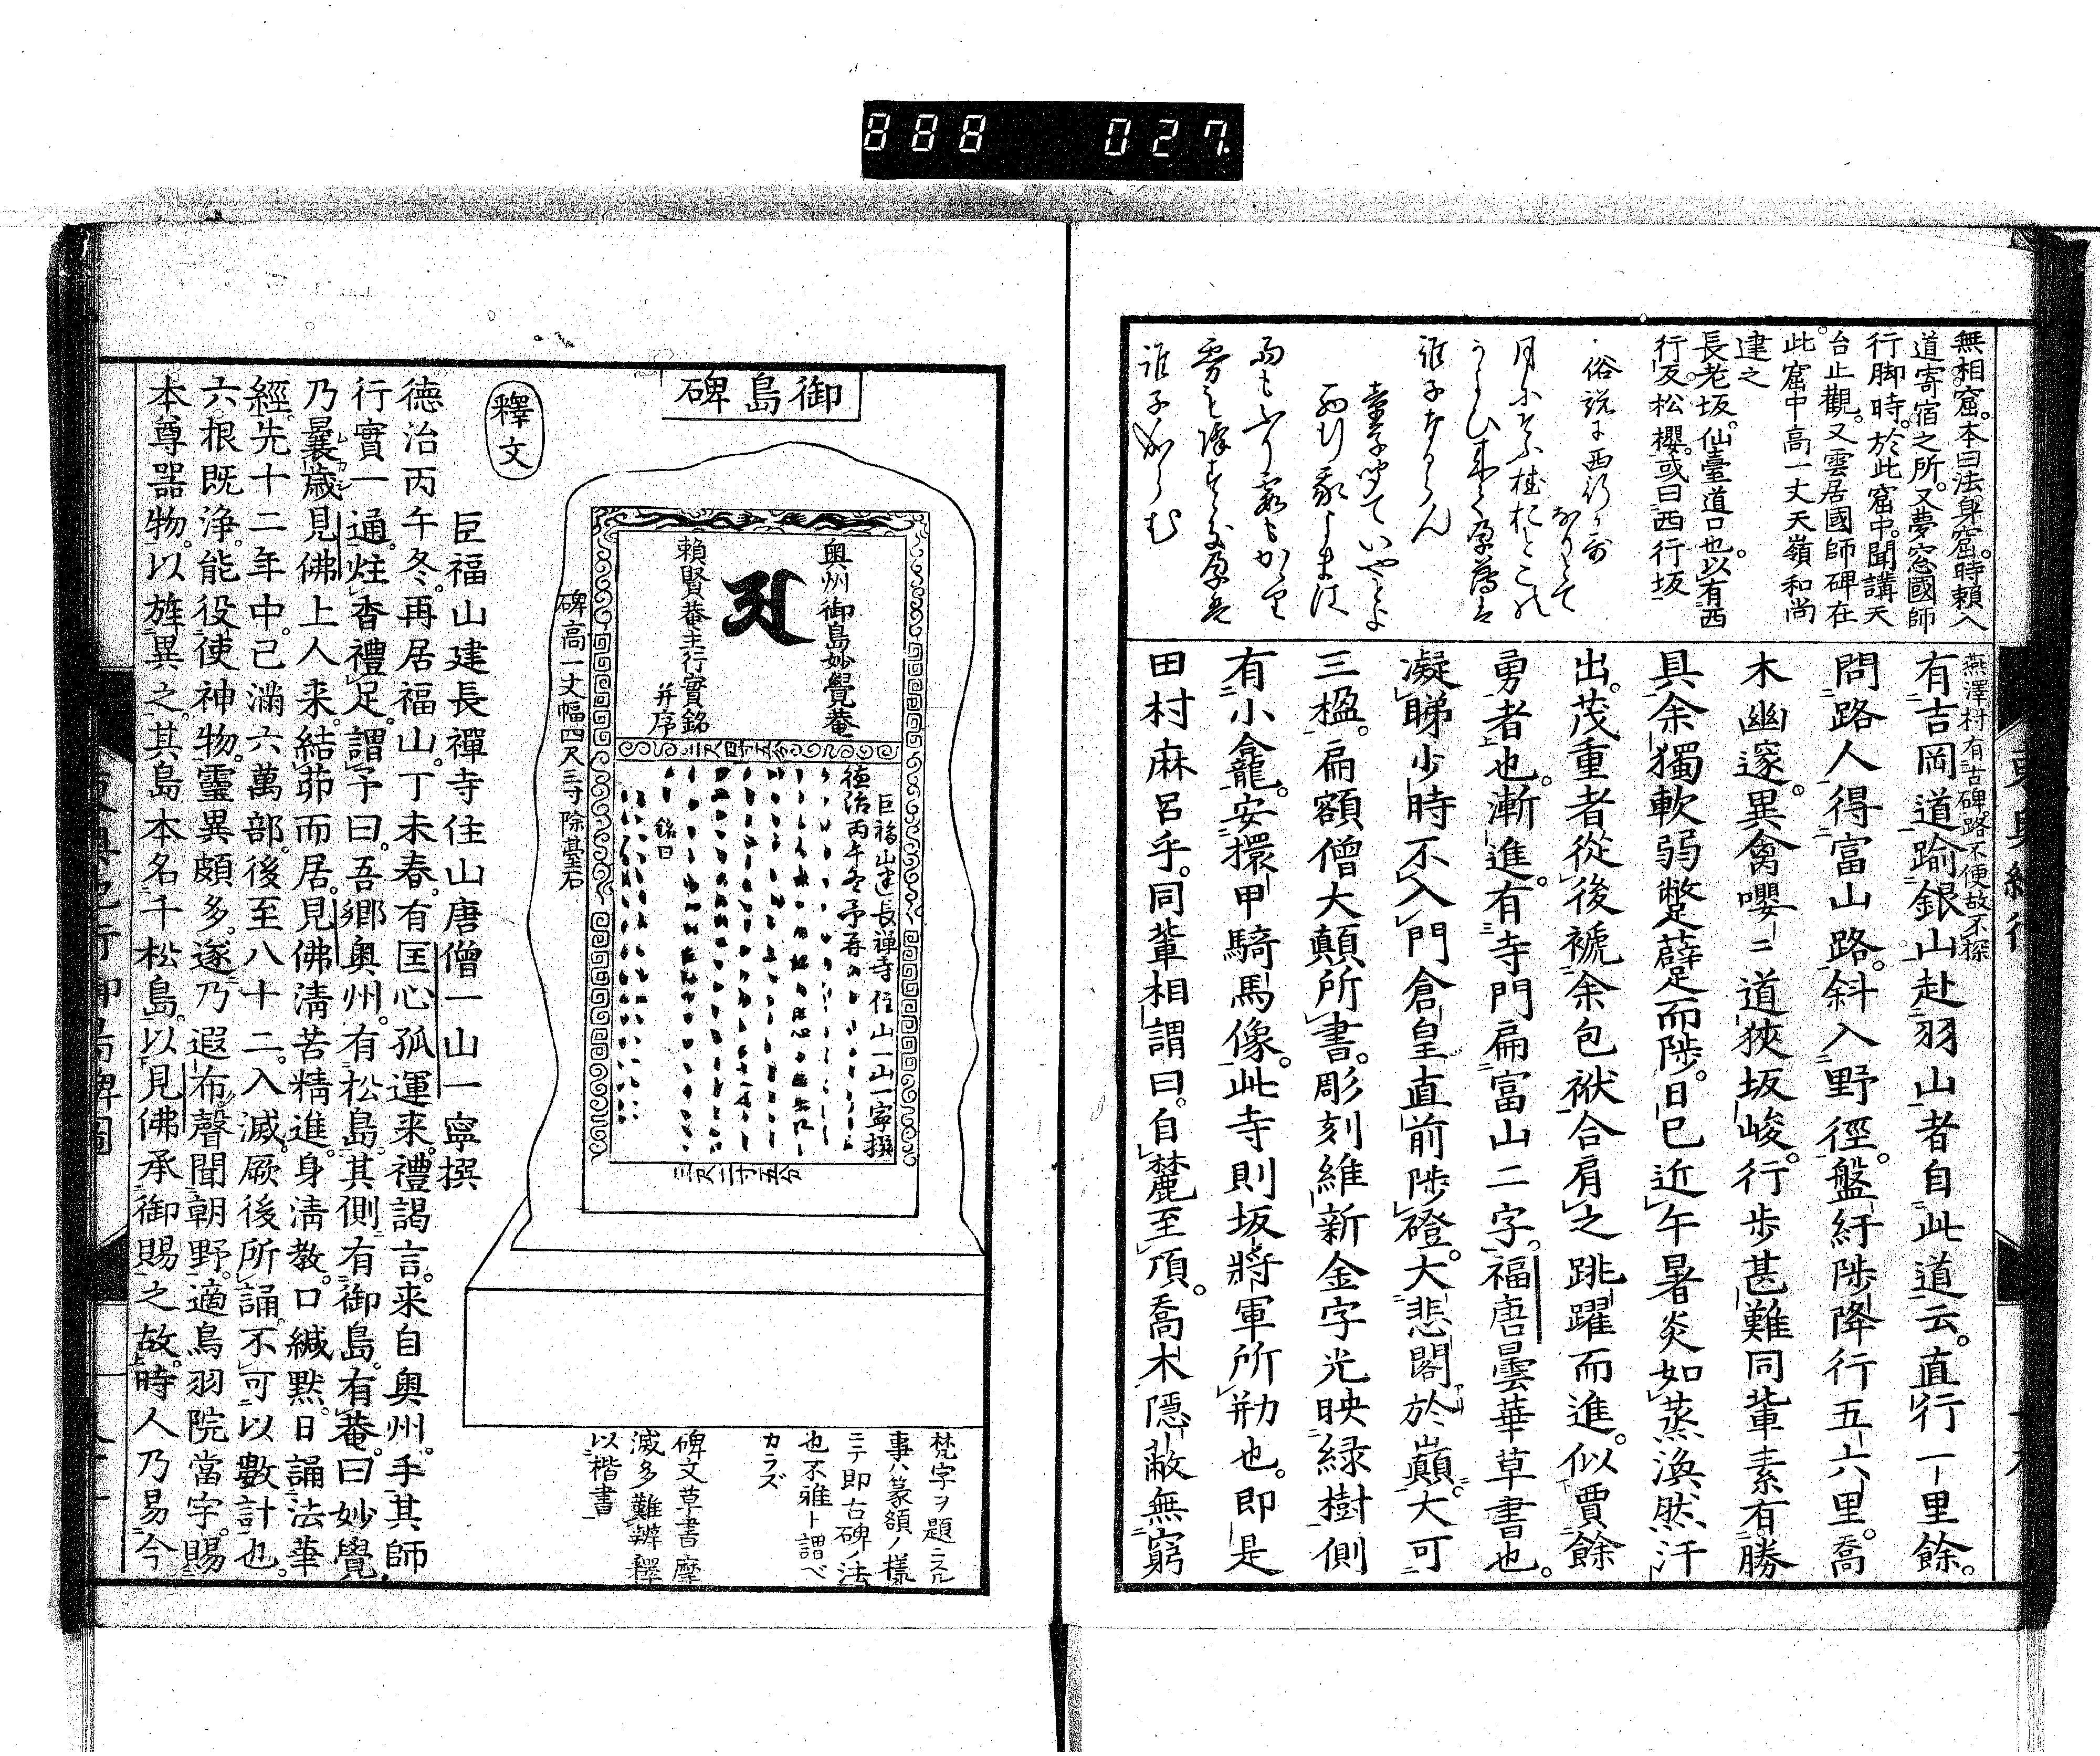 888 027.
無相窟。本曰法身窟。時賴入
道寄宿之所。又夢窓國師
行脚時。於此窟中。聞講天
台止觀。又雲居國師碑在
此窟中高一丈天嶺和尚
建之
長老坂。仙臺道口也。以有西
行反松櫻。或曰西行坂
俗説ニ西行
月にそふ桂
雨もふり霰もかゝり
誰子
燕澤村有古碑路不便故不探
有古岡道踰銀山赴羽山者自此道云。直行一里餘。
問路人得富山路。斜入野徑。盤紆陟降行五六里。喬
木幽邃。異禽嚶ニ道狹坂峻。行歩甚難同輩素有勝
具余獨軟弱蹩躠而陟。日已近午暑炎如蒸渙然汗
出。茂重者從後褫余包袱合肩之跳躍而進。似賈餘
勇者也。漸進。有寺門扁富山二字。福唐曇華草書也。
凝睇少時不入門倉皇直前陟磴。大悲閣於巓。大可
三楹。扁額僧大顛所書。彫刻維新金字光映緑樹側
有小龕。安擐甲騎馬像。此寺則坂將軍所剏也。即是
田村麻呂乎。同輩相謂曰。自麓至頂。喬木隱蔽無窮
御島碑
奥州御島妙覺菴
賴賢菴主行實銘
并序
三尺四寸五分
巨福山建長禪寺住山一山一寧撰
德治丙午冬予再
銘曰
三尺二寸五分
碑高一丈幅四尺三寸除臺石
梵字ヲ題ニスル
事ハ篆額ノ樣
ニテ即古碑ノ法
也不雅ト謂ベ
カラズ
碑文草書摩
滅多難辨釋
以楷書
釋文
巨福山建長禪寺住山唐僧一山一寧撰
德治丙午冬。再居福山。丁未春。有匡心孤運来。禮謁言。来自奥州。手其師
行實一通。炷香禮足。謂予曰。吾郷奥州。有松島。其側有御島。有菴。曰妙覺。
乃曩歳見佛上人来。結茆而居。見佛淸苦精進。身淸教。口緘黙。日誦法華
經。先十二年中。已滿六萬部。後至八十二。入滅。厥後所誦。不可以數計也。
六根既浄。能役使神物。靈異頗多。遂乃遐布。聲聞朝野。適鳥羽院當字。賜
本尊器物。以旌異之。其島本名千松島。以見佛承御賜之故。時人乃易今